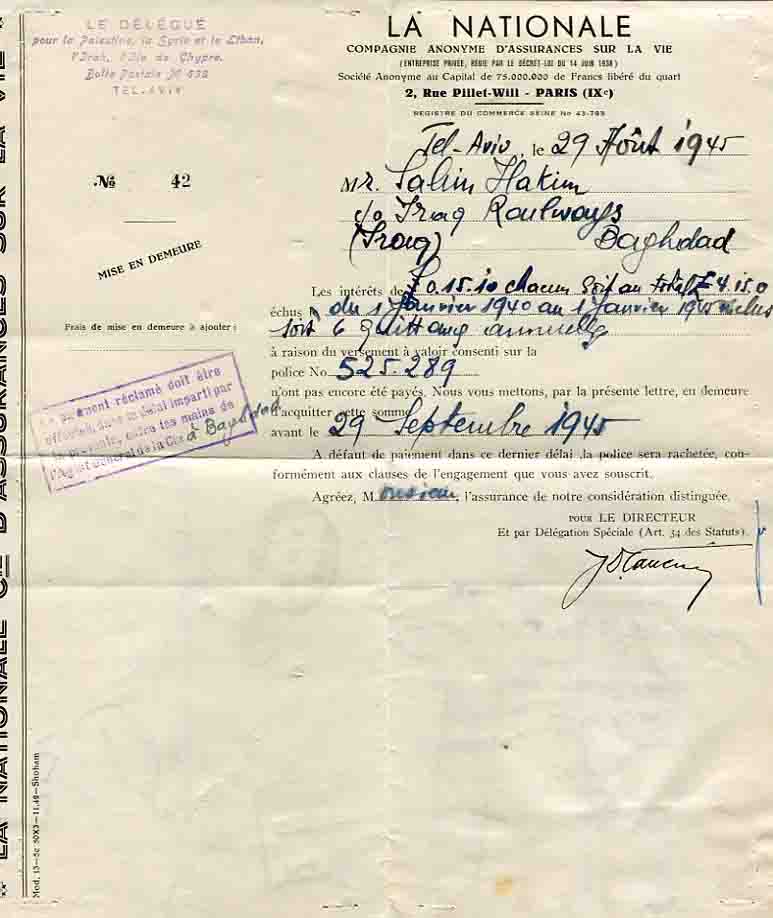 LE DÉLÉGUÉ
pour la Palestine, la Syrie et le Liban,
l'Irak, l'Ile de Chypre.
Boîte Postale № 632
TEL-AVIV
LA NATIONALE
COMPAGNIE ANONYME D'ASSURANCES SUR LA VIE
(ENTREPRISE PRIVÉE, RÉGIE PAR LE DÉCRET-LOI DU 14 JUIN 1938)
Société Anonyme au Capital de 75.000.000 de Francs libéré du quart
2, Rue Pillet-Will - PARIS (IXe)
REGISTRE DU COMMERCE SEINE No 43-793
Tel-Aviv, le 29 Août 1945
№ 42
Mr. Salim Hakim
c/o Iraq Railways
(Iraq) Baghdad
MISE EN DEMEURE
Frais de mise en demeure à ajouter :
Les intérêts de £ 0.15.10 chacun soit au total £ 4.15.0
échus du 1 Janvier 1940 au 1 Janvier 1945 inclus
soit 6 Quittances annuelles
à raison du versement à valoir consenti sur la
police No 525.289
n'ont pas encore été payés. Nous vous mettons, par la présente lettre, en demeure
d'acquitter cette somme
avant le 29 Septembre 1945
Le paiement réclamé doit être
effectué, dans le délai imparti par
la présente, entre les mains de
l'Agent Général de la Cie à Bagdad
A défaut de paiement dans ce dernier délai, la police sera rachetée, con-
formément aux clauses de l'engagement que vous avez souscrit.
Agréez, Monsieur, l'assurance de notre considération distinguée.
POUR LE DIRECTEUR
Et par Délégation Spéciale (Art. 34 des Statuts).
* LA NATIONALE CIE D'ASSURANCES SUR LA VIE *
Mod. 13—5c 50X3—11.42—Shoham